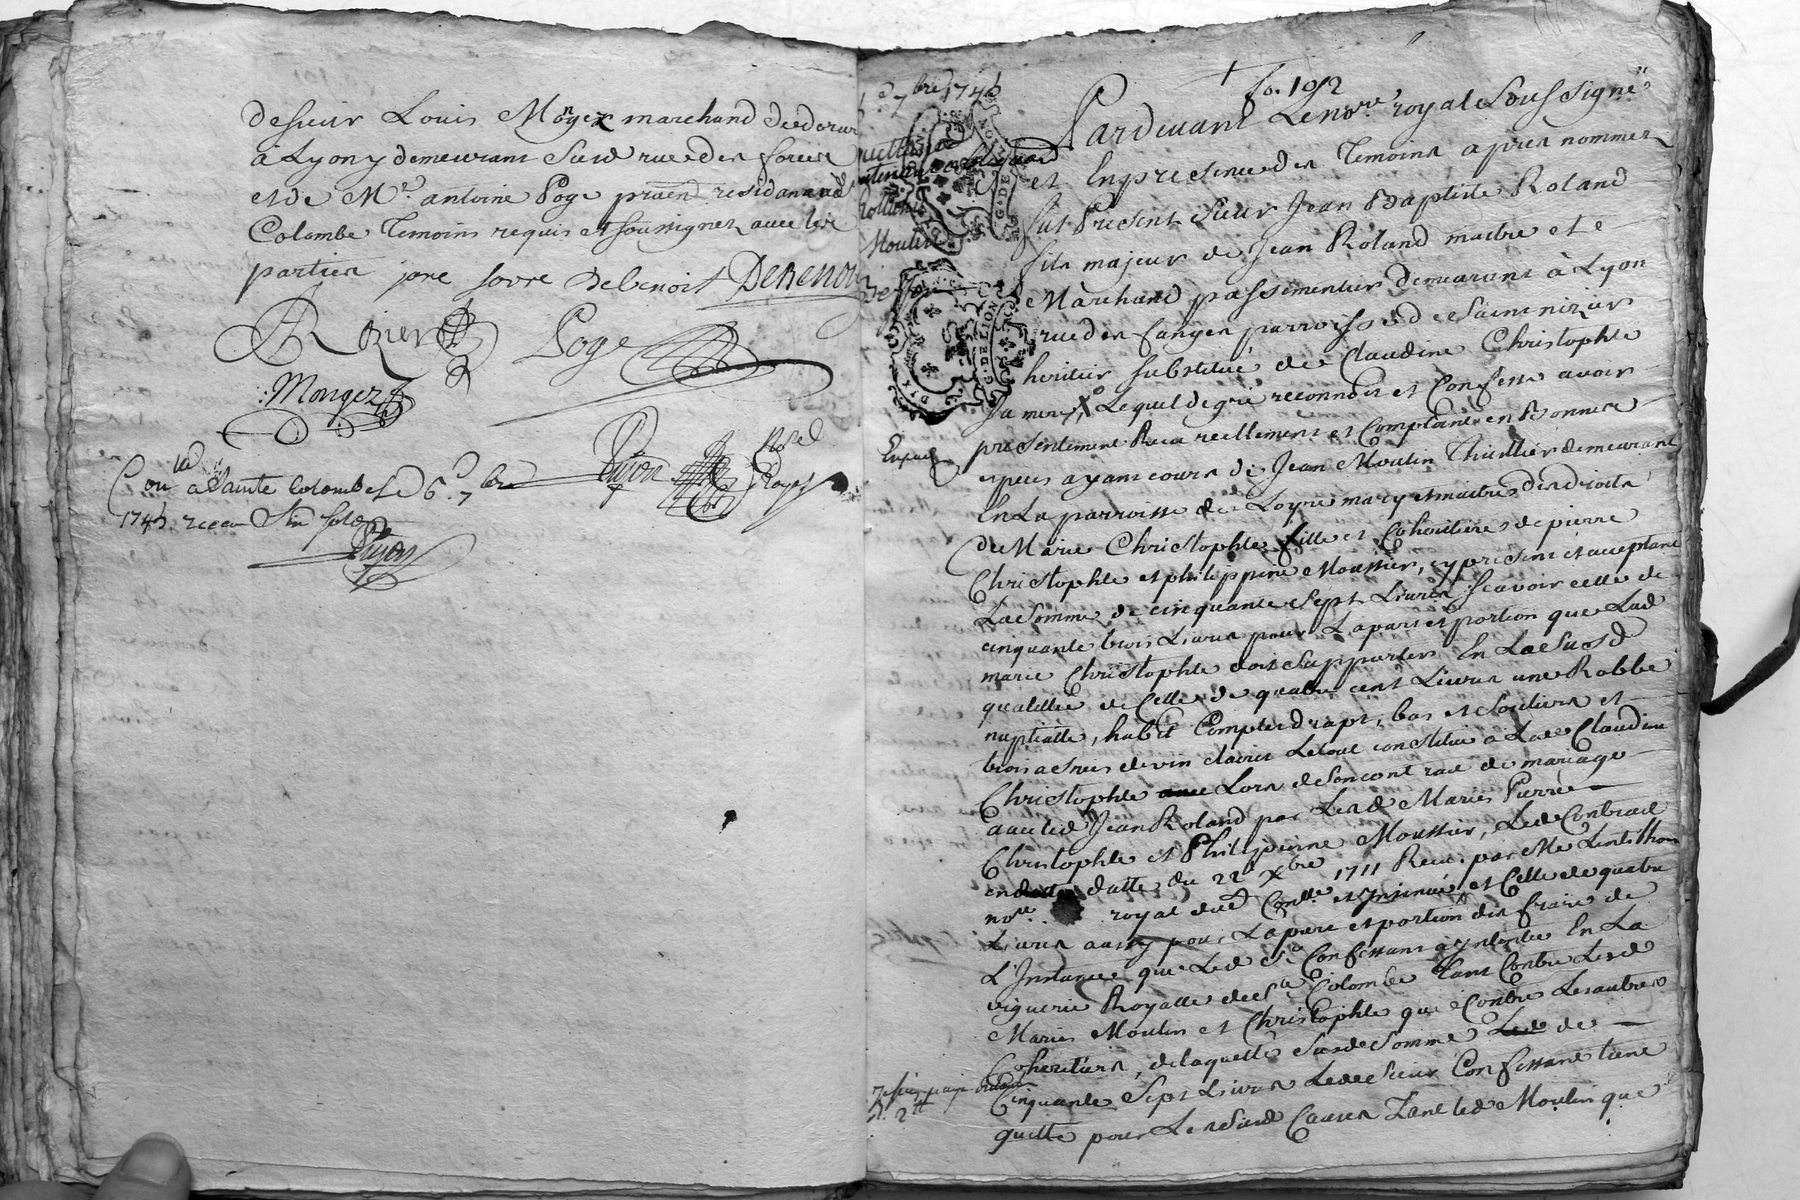 de sieur Louis Mongez marchand dedorur
à Lyon y demeurant Susd rue des forces
et de Mr. antoine Poge praen residant aud
Colombe Temoins requis et soussignez avec les
parties
DeBenoit
Rozier
Poge
Mongez
Con a Sainte Colombe Le 6 7bre
Dujon
174 receu Six sols
Dujon
7bre 174
fo. 102
Pardevant Le nore. royal Soussigné
et En presence des Temoins apres nommez
fut Present Sieur Jean Baptiste Roland
fils majeur de Jean Roland maitre et
Marchand passementier demeurant à Lyon
rue des parroisse de Saint nizier
heritier substitué de Claudine Christophle
Sa mere, Lequel de gré reconnoit et Confesse avoir
presentement Receu reellement et Comptant en Bonnes
especes ayant cours de Jean Moulin Thuillier demeurant
En La parroisse de Loyre mary et maitre des droits
de Marie Christophle fille et Coheritiere de pierre
Christophle et philippine Moussier, cy present et acceptant
La Somme de cinquante Sept Livres scavoir celle de
cinquante trois Livres pour La part et portion que Lad
marie Christophle doit Supporter En La Susd
qualittée de Celle de quatre cent Livres une Robbe
nuptialle, habit Complet drapt, bas et souliers et
trois asnées de vin clairet Le tout constitué à Lade Claudine
Christophle Lors de Son contract de mariage
avec led Jean Roland par Lesd Mariés Pierre
Christophle et Philippinne Moussier, Led Contract
en datte du 22e xbre 1711 Receu par Me Lentillon
nore. royal dud Cond. et Insinué, et Celle de quatre
Livres aussy pour La part et portion des fraix de
L'Instance que Led Sr Confessant a yntentée En La
viguerie Royalle de Ste Colombe Tant Contre Lesd
Mariés Moulin et Christophle que Contre Les autres
Coheritiers, de laquelle Susde Somme de
Cinquante Sept Livres Led Sieur Confessant tient
quitte pour Les Susd Causes Tant led Moulin que